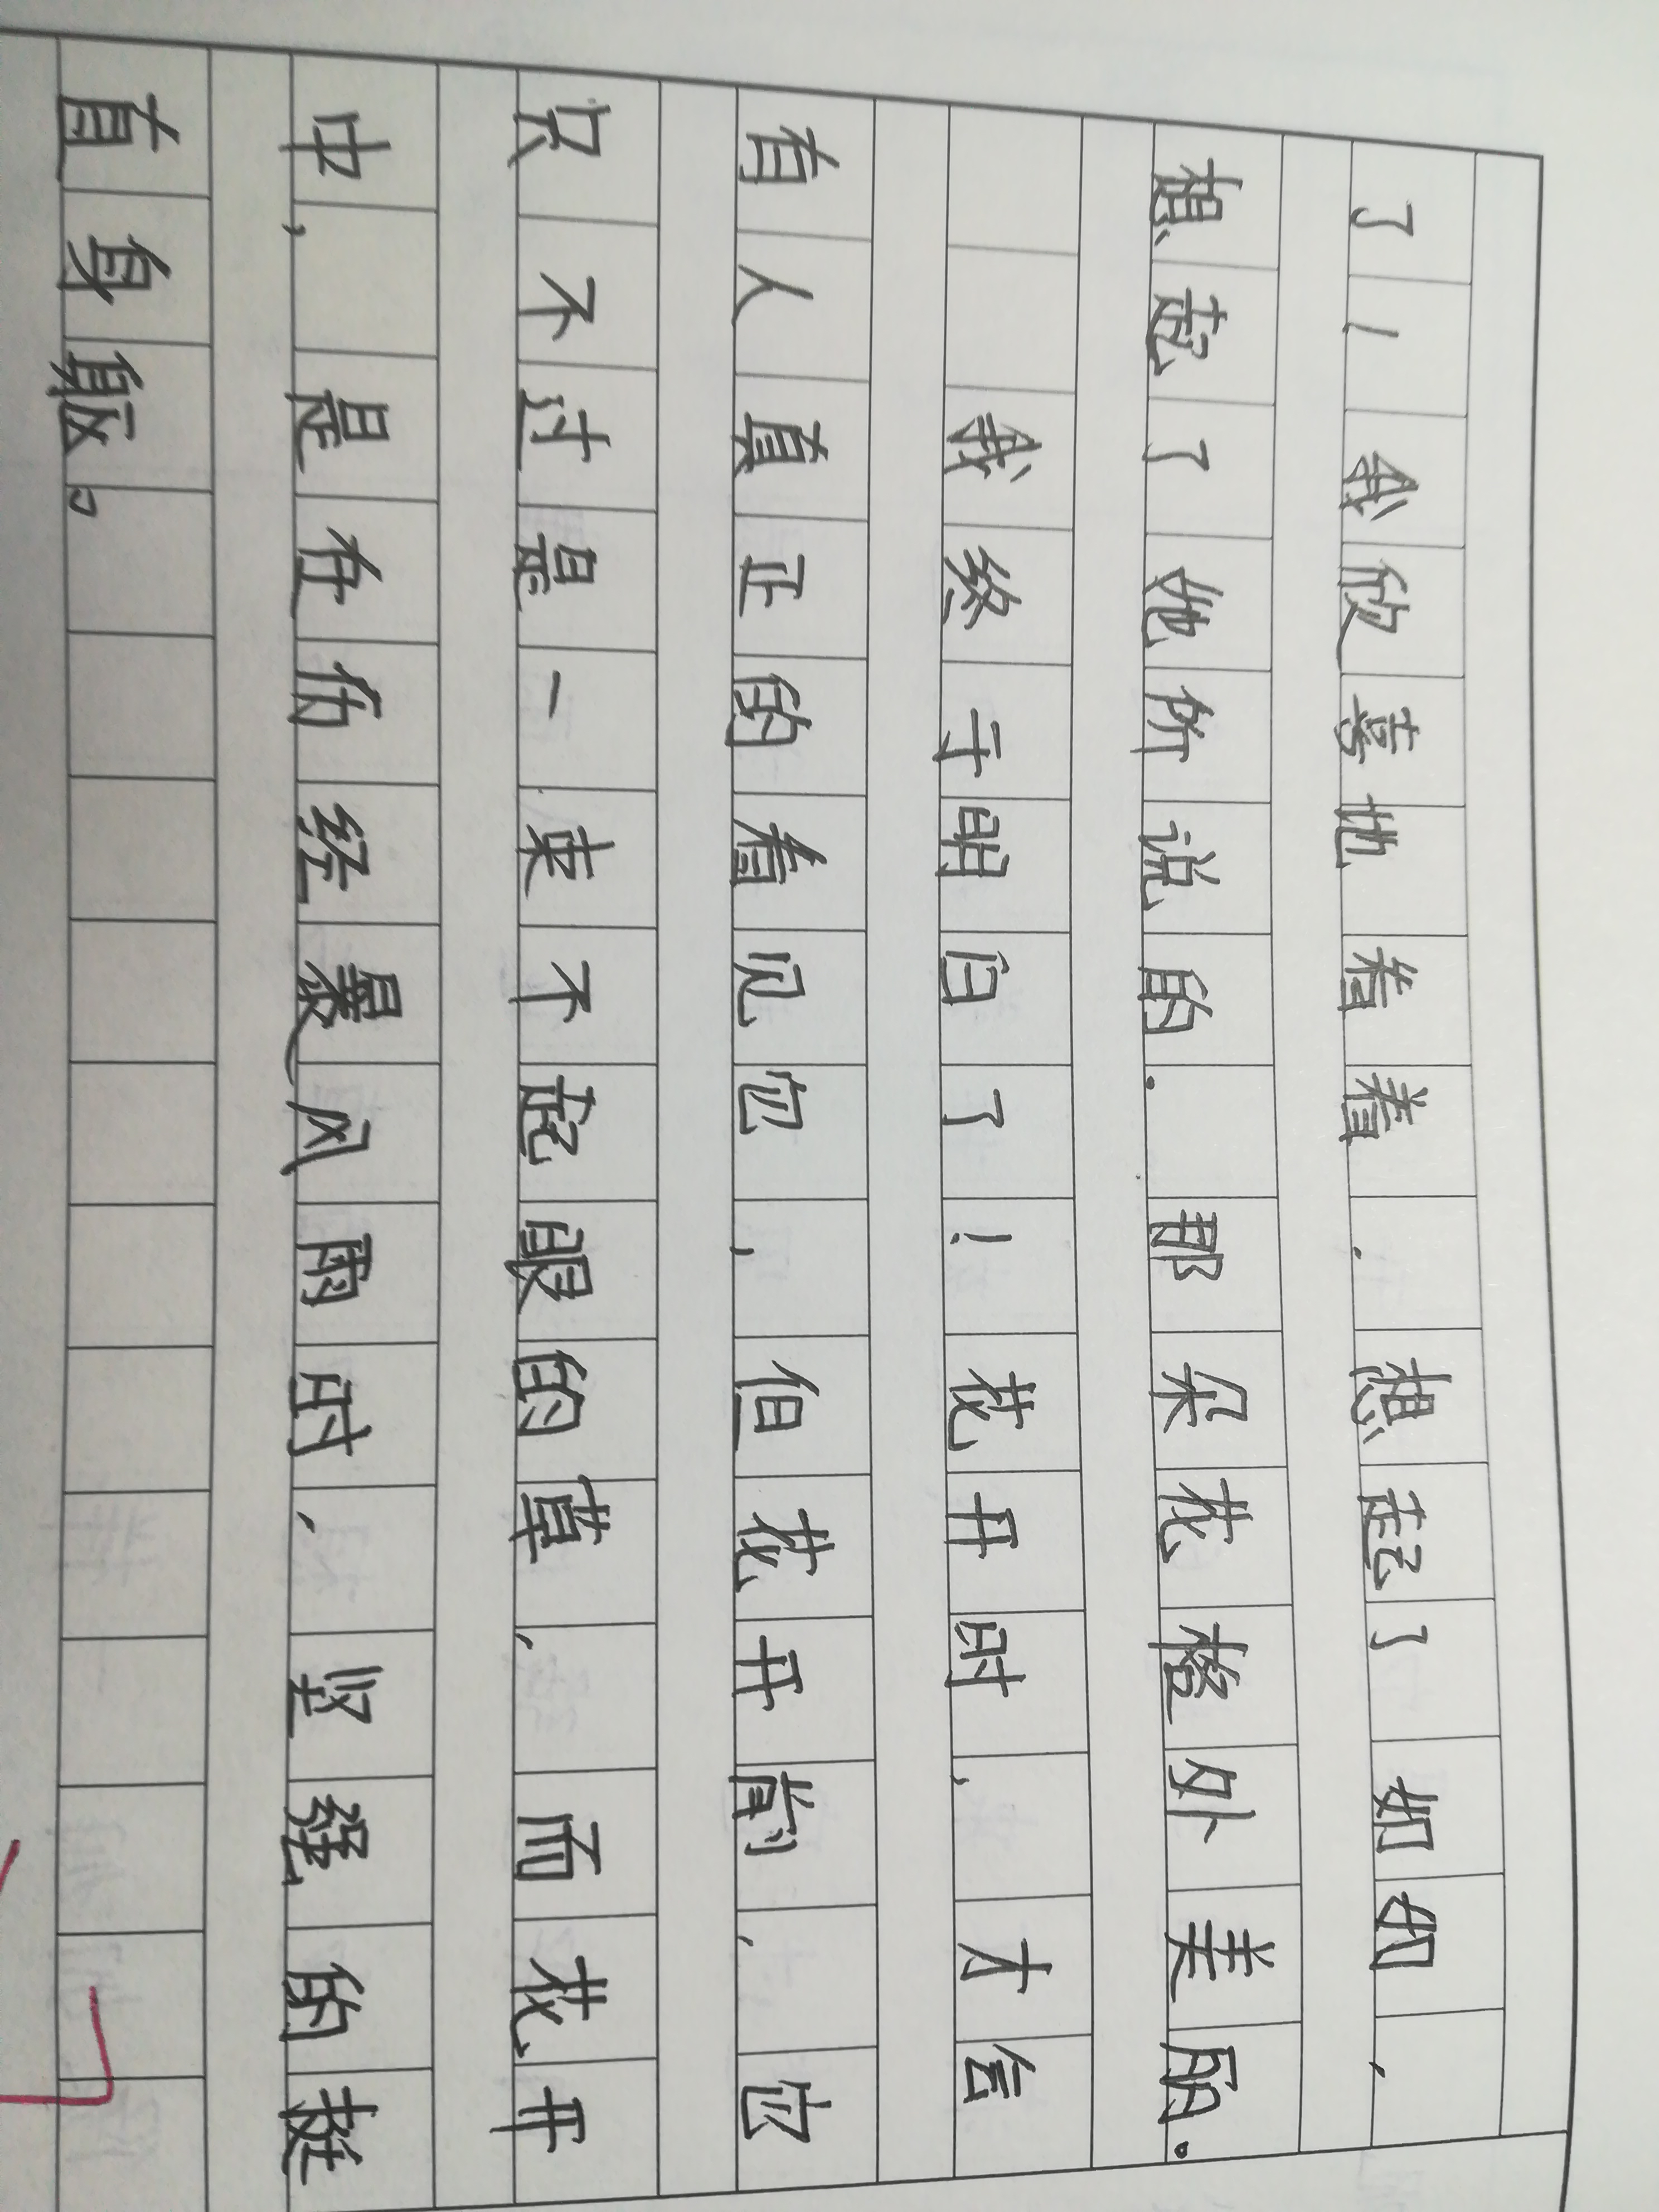 了，我欣喜地看着，想起了奶奶，
想起了她所说的，那朵花格外美丽。
我终于明白了！花开时，才会
有人真正的看见它，但花开前，它
只不过是一束不起眼的草，而花开
中，是在仿经暴风雨时，坚强的挺
直身躯。